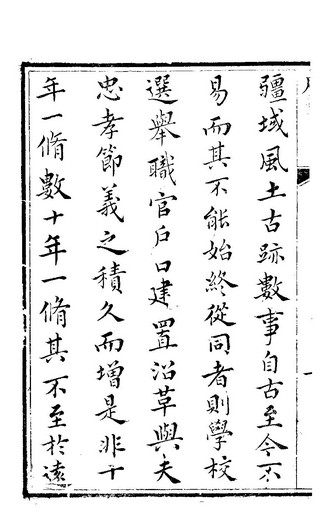 疆域風土古跡數事自古至今不
易而其不能始終從同者則學校
選舉職官戶口建置沿革與夫
忠孝節義之積久而增是非十
年一脩數十年一脩其不至於遠